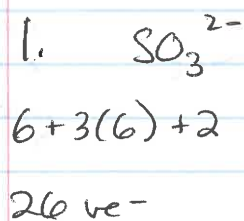 1. SO₃²⁻
6+3(6)+2
26 ve-